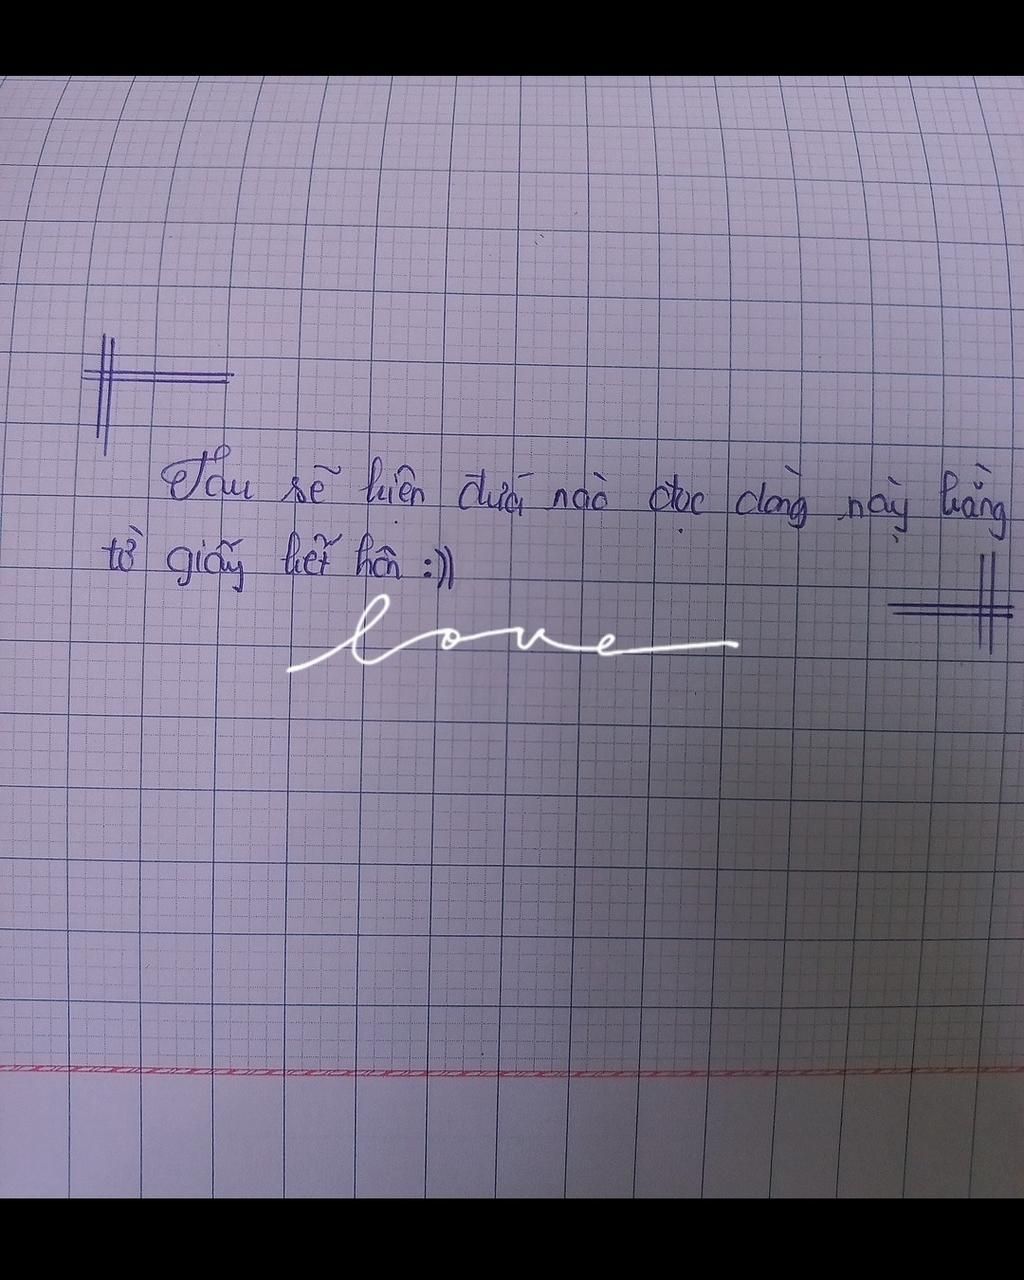 Tẩu sẽ hiên đưới nào đọc dòng này bằng
tờ giấy hết hồn :))
love